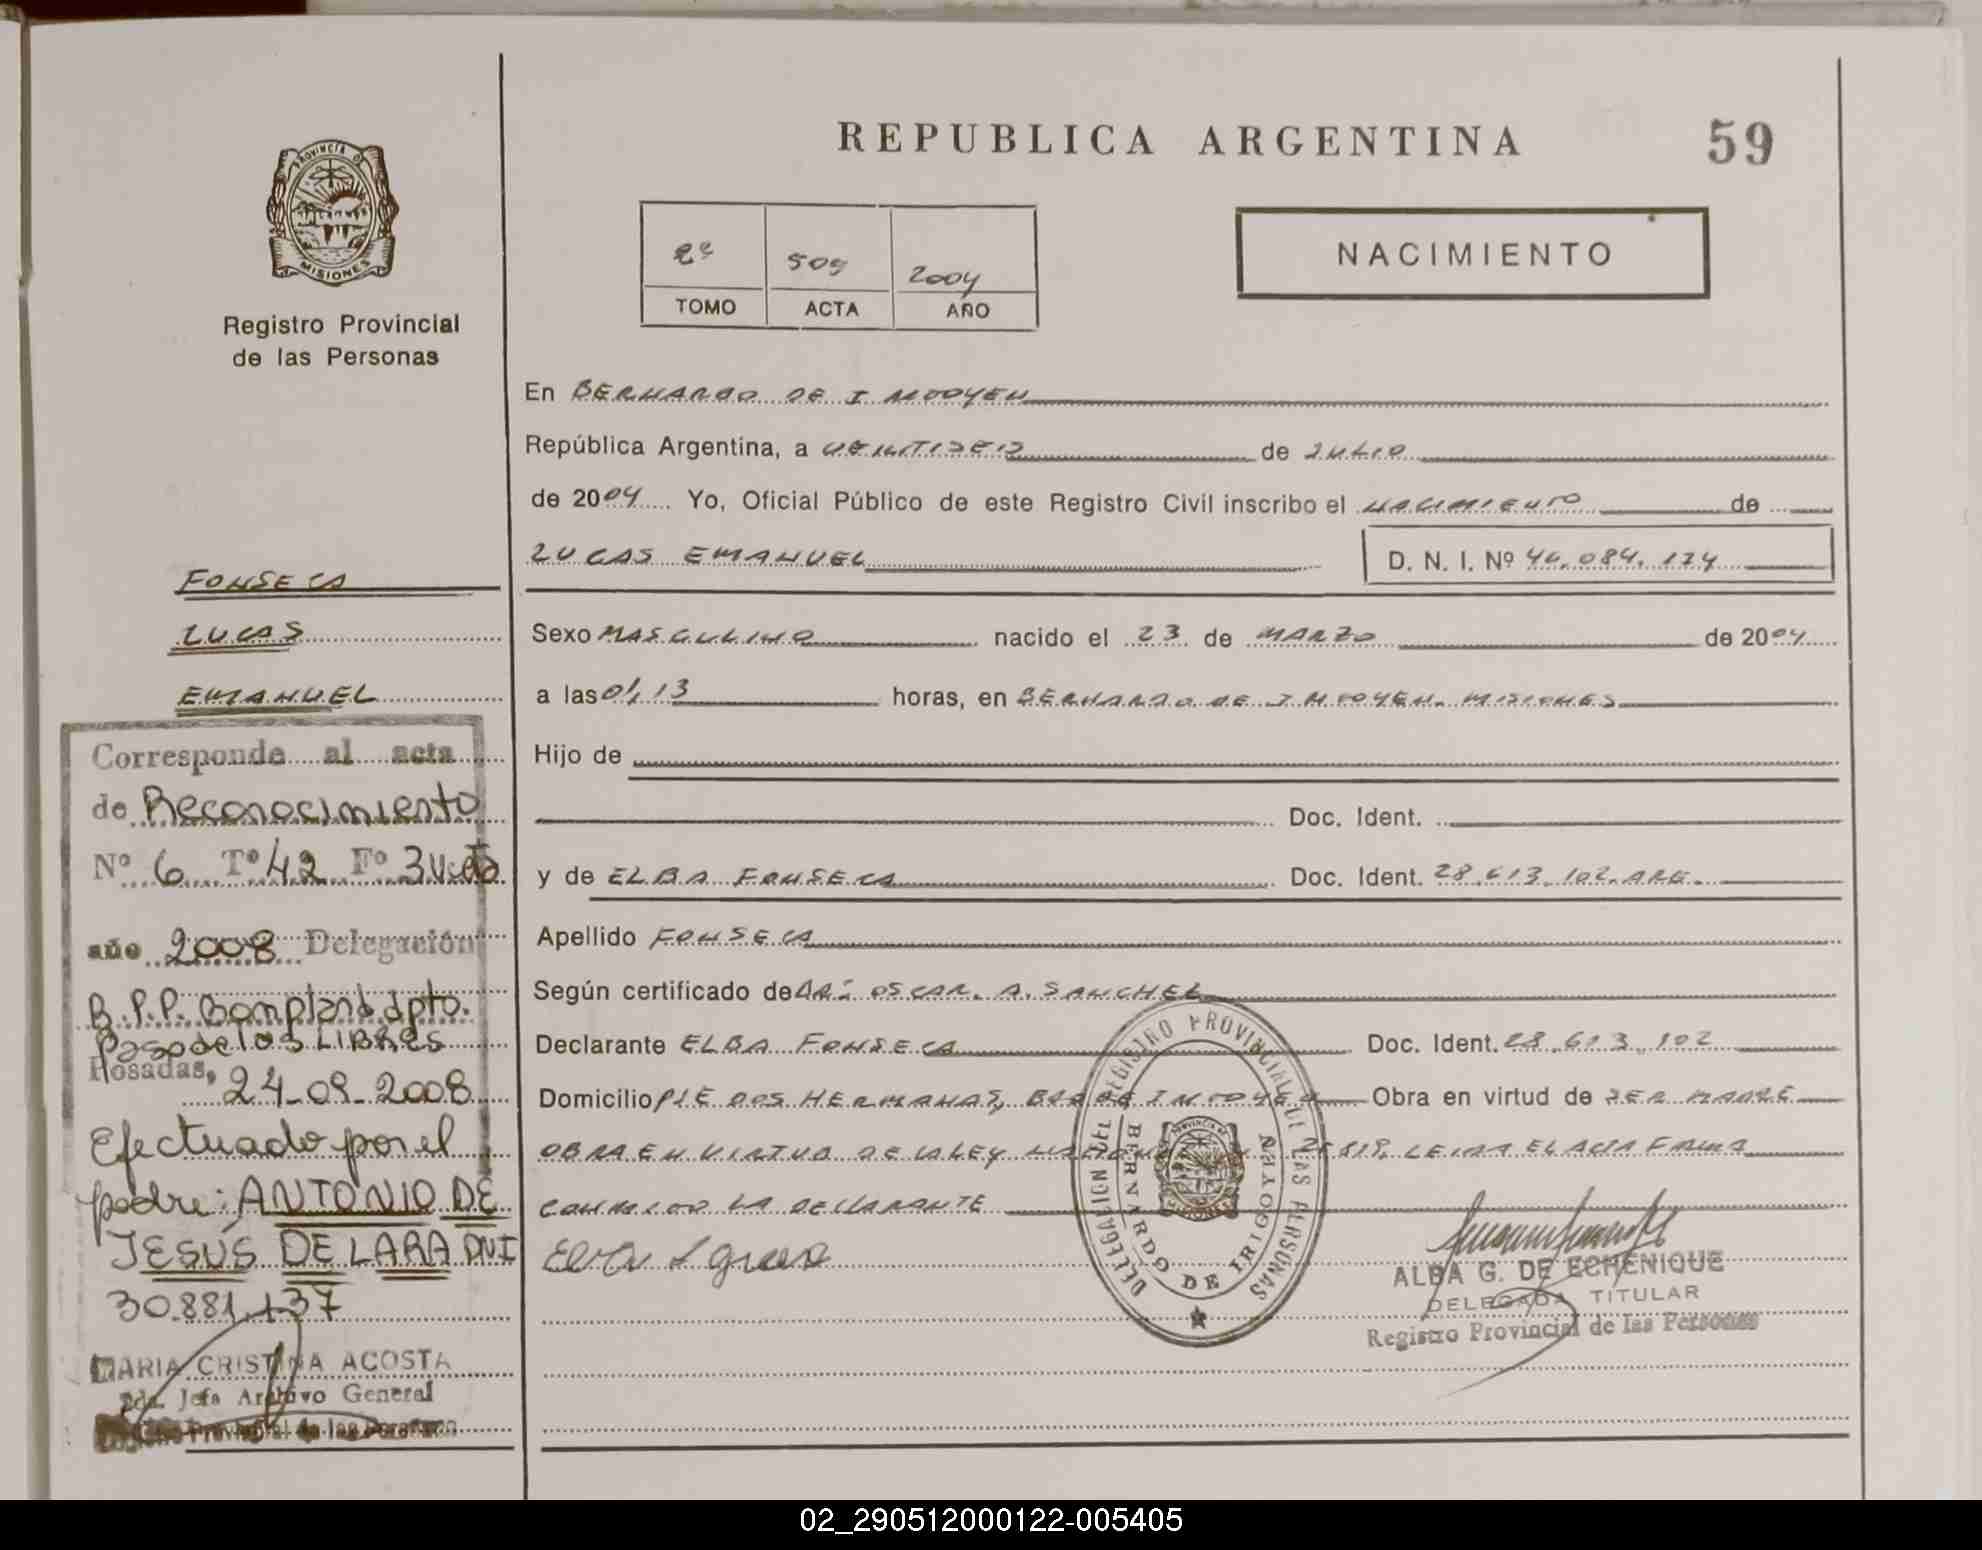 REPUBLICA ARGENTINA
59
PROVINCIA DE
MISIONES
Registro Provincial
de las Personas
2º 509 2004
TOMO ACTA AÑO
NACIMIENTO
En BERNARDO DE IRIGOYEN
República Argentina, a VEINTISEIS de JULIO
de 2004 Yo, Oficial Público de este Registro Civil inscribo el NACIMIENTO de
LUCAS EMANUEL D. N. I. Nº 46.084.174
Sexo MASCULINO nacido el 23 de MARZO de 2004
a las 01,13 horas, en BERNARDO DE IRIGOYEN. MISIONES
Hijo de
Doc. Ident.
y de ELBA FONSECA Doc. Ident. 28.613.102. ARG.
Apellido FONSECA
Según certificado de DR. OSCAR. A. SANCHEZ
Declarante ELBA FONSECA Doc. Ident. 28.613.102
Domicilio PJE DOS HERMANAS, BDO DE IRIGOYEN Obra en virtud de SER MADRE
OBRA EN VIRTUD DE LA LEY LEIDA EL ACTA FIRMA
CONMIGO LA DECLARANTE
ALBA G. DE ECHENIQUE
DELEGADA TITULAR
Registro Provincial de las Personas
DELEGACION DEL REGISTRO PROVINCIAL DE LAS PERSONAS
BERNARDO DE IRIGOYEN
FONSECA
LUCAS
EMANUEL
Corresponde al acta
de Reconocimiento
Nº 6 Tº 42 Fº 3 Vcto
año 2008 Delegación
R.P.P. Bonpland dpto.
Paso de los LIBRES
Posadas, 24-09-2008
Efectuado por el
padre: ANTONIO DE
JESÚS DE LARA DNI
30.881.737
MARIA CRISTINA ACOSTA
2da. Jefa Archivo General
Provincial de las Personas
02_290512000122-005405